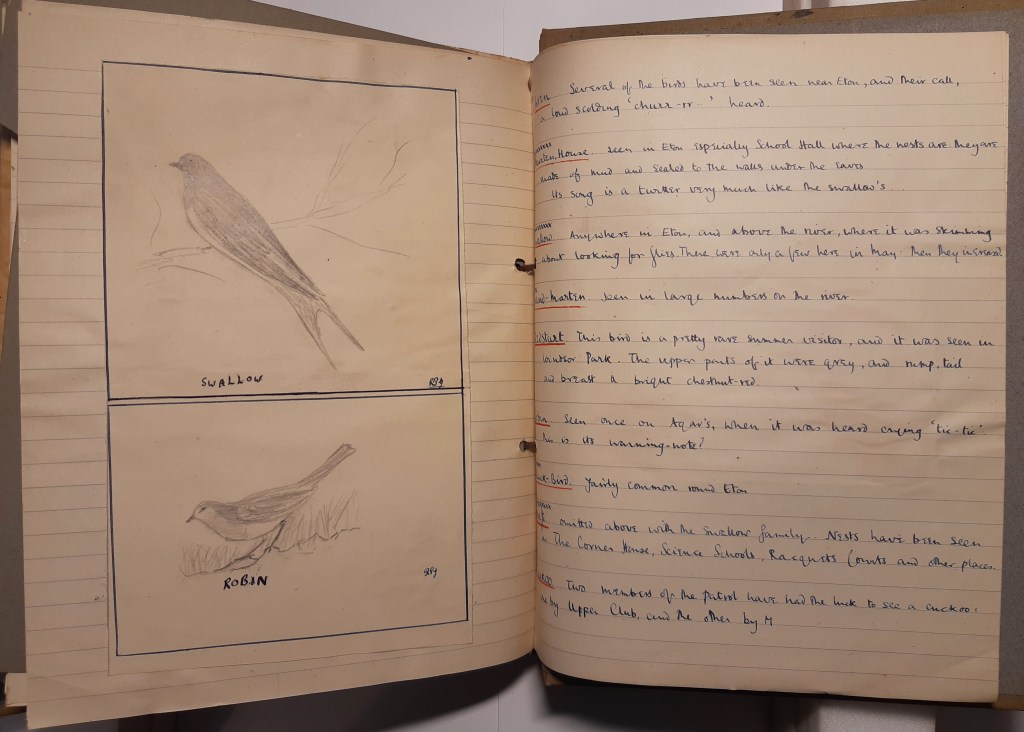 SWALLOW
ROBIN
Several of the birds have been seen near Eton, and their call,
a loud scolding 'churr-rr-' heard.
House. Seen in Eton especially School Hall where the nests are. They are
made of mud and sealed to the walls under the eaves
Its song is a twitter very much like the swallow's...
Anywhere in Eton, and above the river, where it was skimming
about looking for flies. There were only a few here in May. Then they increased.
Martin. Seen in large numbers on the river
This bird is a pretty rare summer visitor, and it was seen in
Windsor Park. The upper parts of it were grey, and rump, tail
and breast a bright chestnut-red.
Seen once on Agar's, when it was heard crying 'tic-tic'.
is its warning-note?
Bird. Fairly common round Eton
omitted above with the swallow family. Nests have been seen
on The Corner House, Science Schools, Racquets Courts and other places.
Two members of the patrol have had the luck to see a cuckoo:
by Upper Club, and the other by M